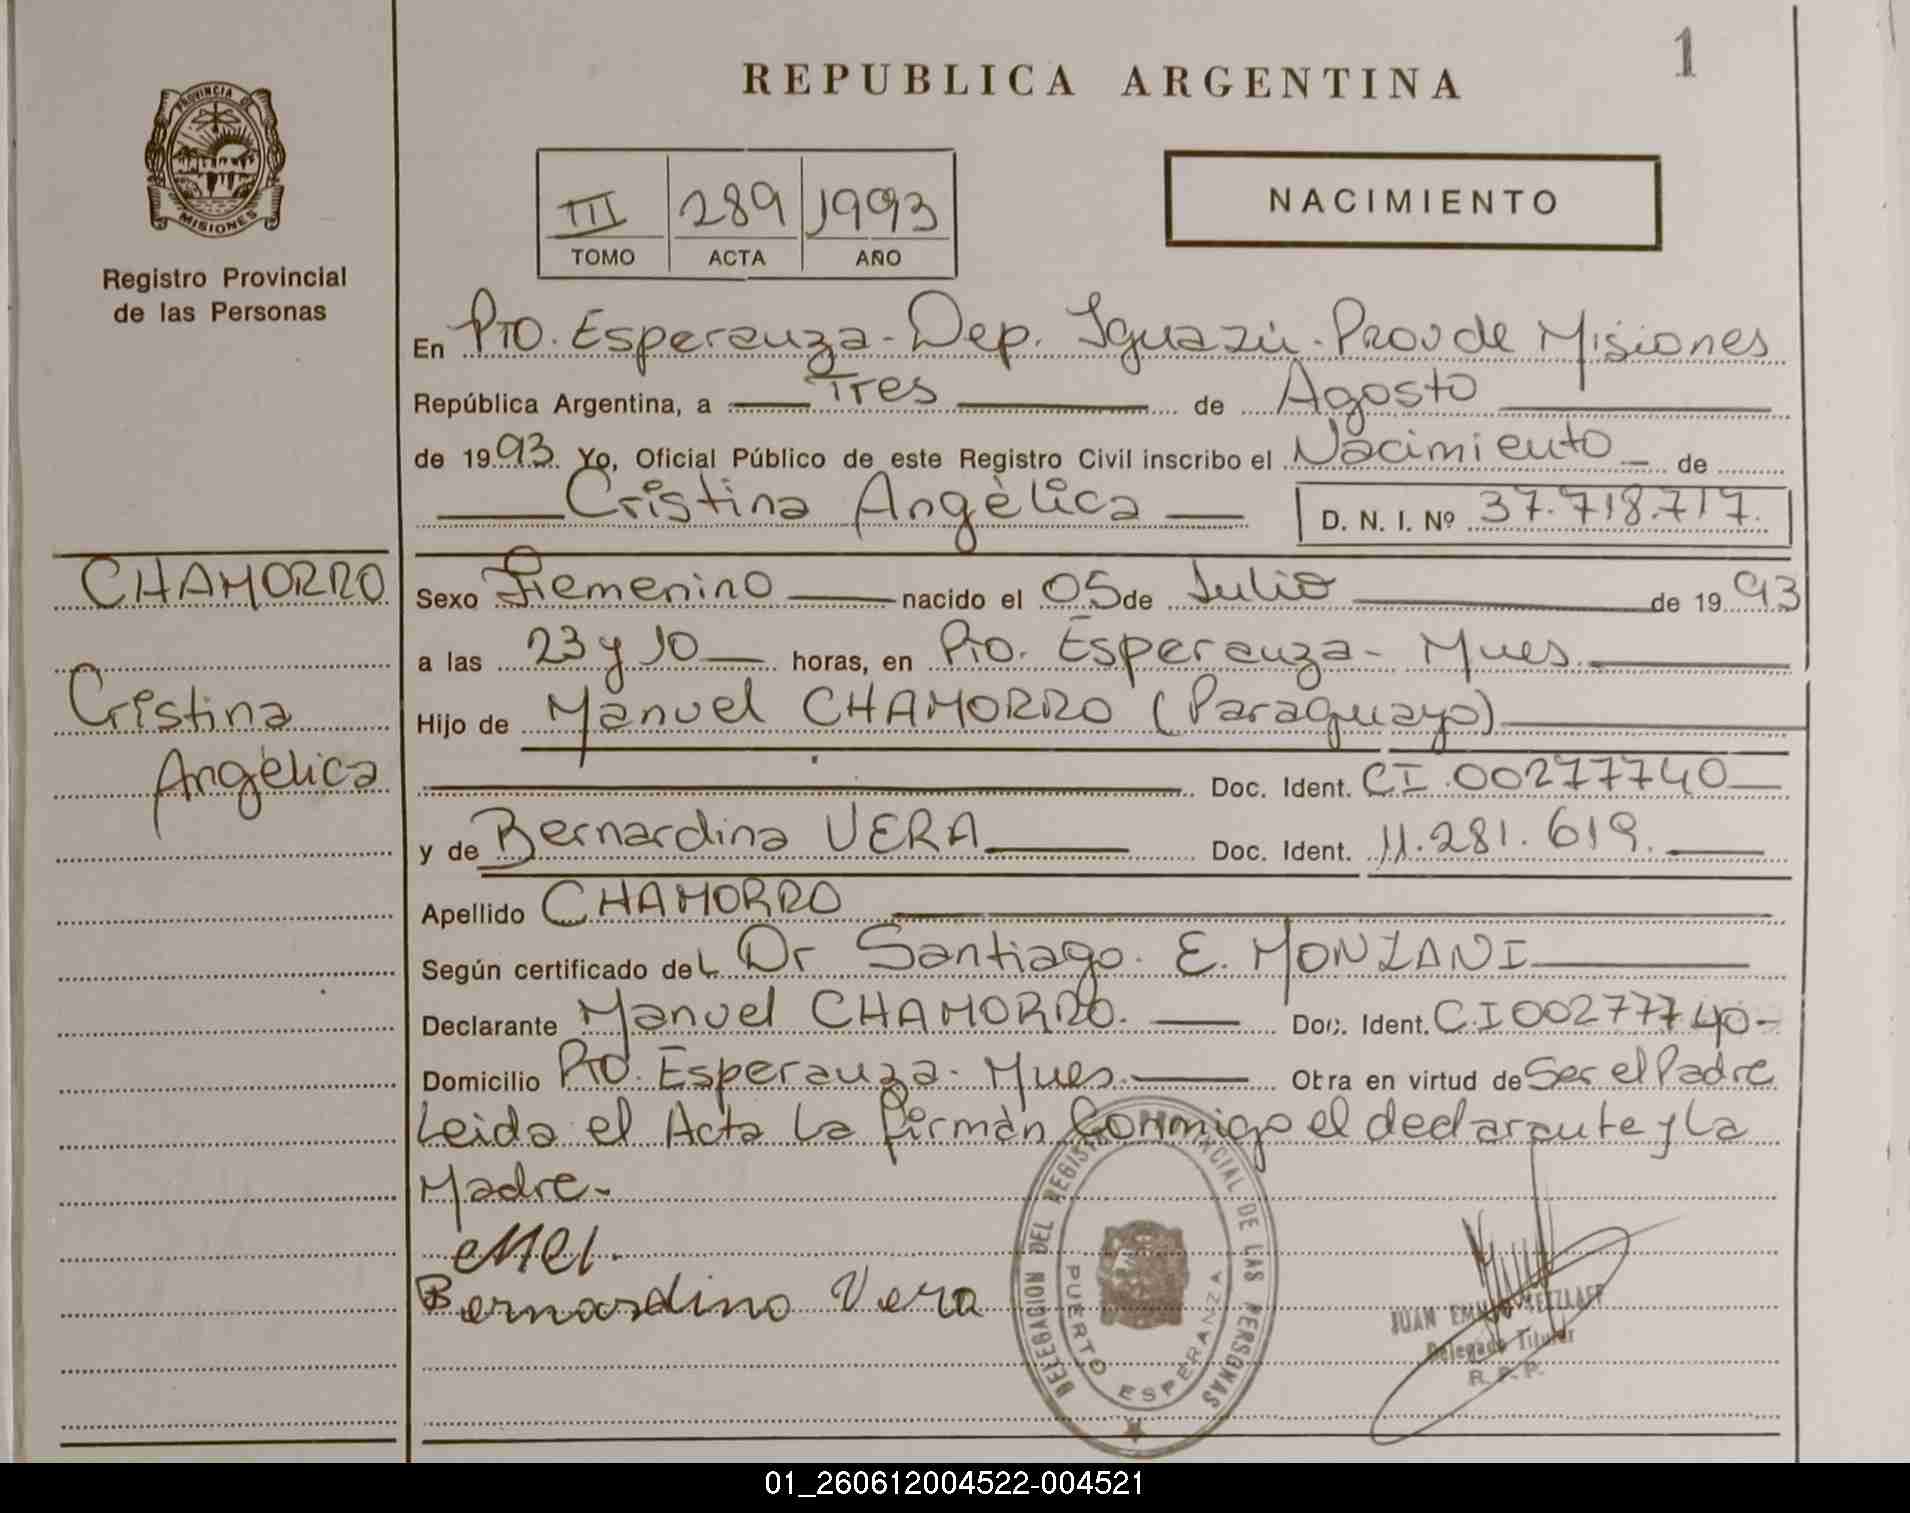 REPUBLICA ARGENTINA
1
PROVINCIA DE
MISIONES
Registro Provincial
de las Personas
III 289 1993
TOMO ACTA AÑO
NACIMIENTO
En Pto. Esperanza - Dep. Iguazú - Prov de Misiones
República Argentina, a Tres de Agosto
de 1993. Yo, Oficial Público de este Registro Civil inscribo el Nacimiento de
Cristina Angélica D. N. I. Nº 37.718.717.
CHAMORRO
Cristina
Angélica
Sexo Femenino nacido el 05 de Julio de 1993
a las 23 y 10 horas, en Pto. Esperanza - Mnes.
Hijo de Manuel CHAMORRO (Paraguayo)
Doc. Ident. CI 00277740
y de Bernardina VERA Doc. Ident. 11.281.619.
Apellido CHAMORRO
Según certificado del Dr Santiago. E. MONZANI
Declarante Manuel CHAMORRO. Doc. Ident. C.I 00277740-
Domicilio Pto. Esperanza - Mnes. Obra en virtud de Ser el Padre
Leida el Acta La firmán Conmigo el declarante y La
Madre.-
Bernardino Vera
DELEGACION DEL REGISTRO PROVINCIAL DE LAS PERSONAS
PUERTO ESPERANZA
JUAN
Delegado Titular
R. P. P.
01_260612004522-004521